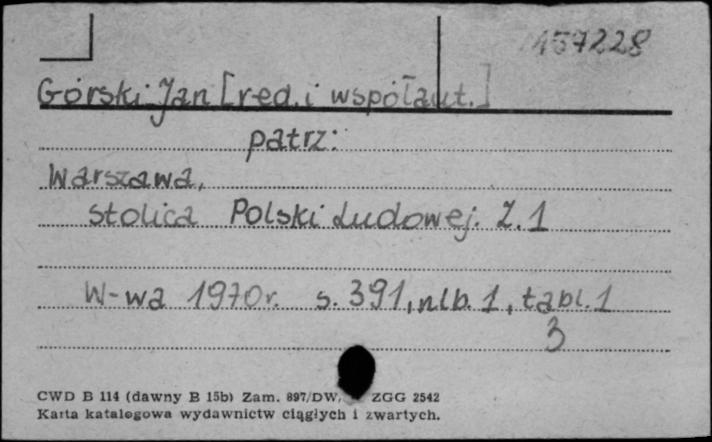 157228
Górski Jan [red. i współaut.]
patrz:
Warszawa,
stolica Polski Ludowej. Z. 1
W-wa 1970r. s. 391, nlb. 1, tabl. 1
3
CWD B 114 (dawny B 15b) Zam. 897/DW, ZGG 2542
Karta katalogowa wydawnictw ciągłych i zwartych.